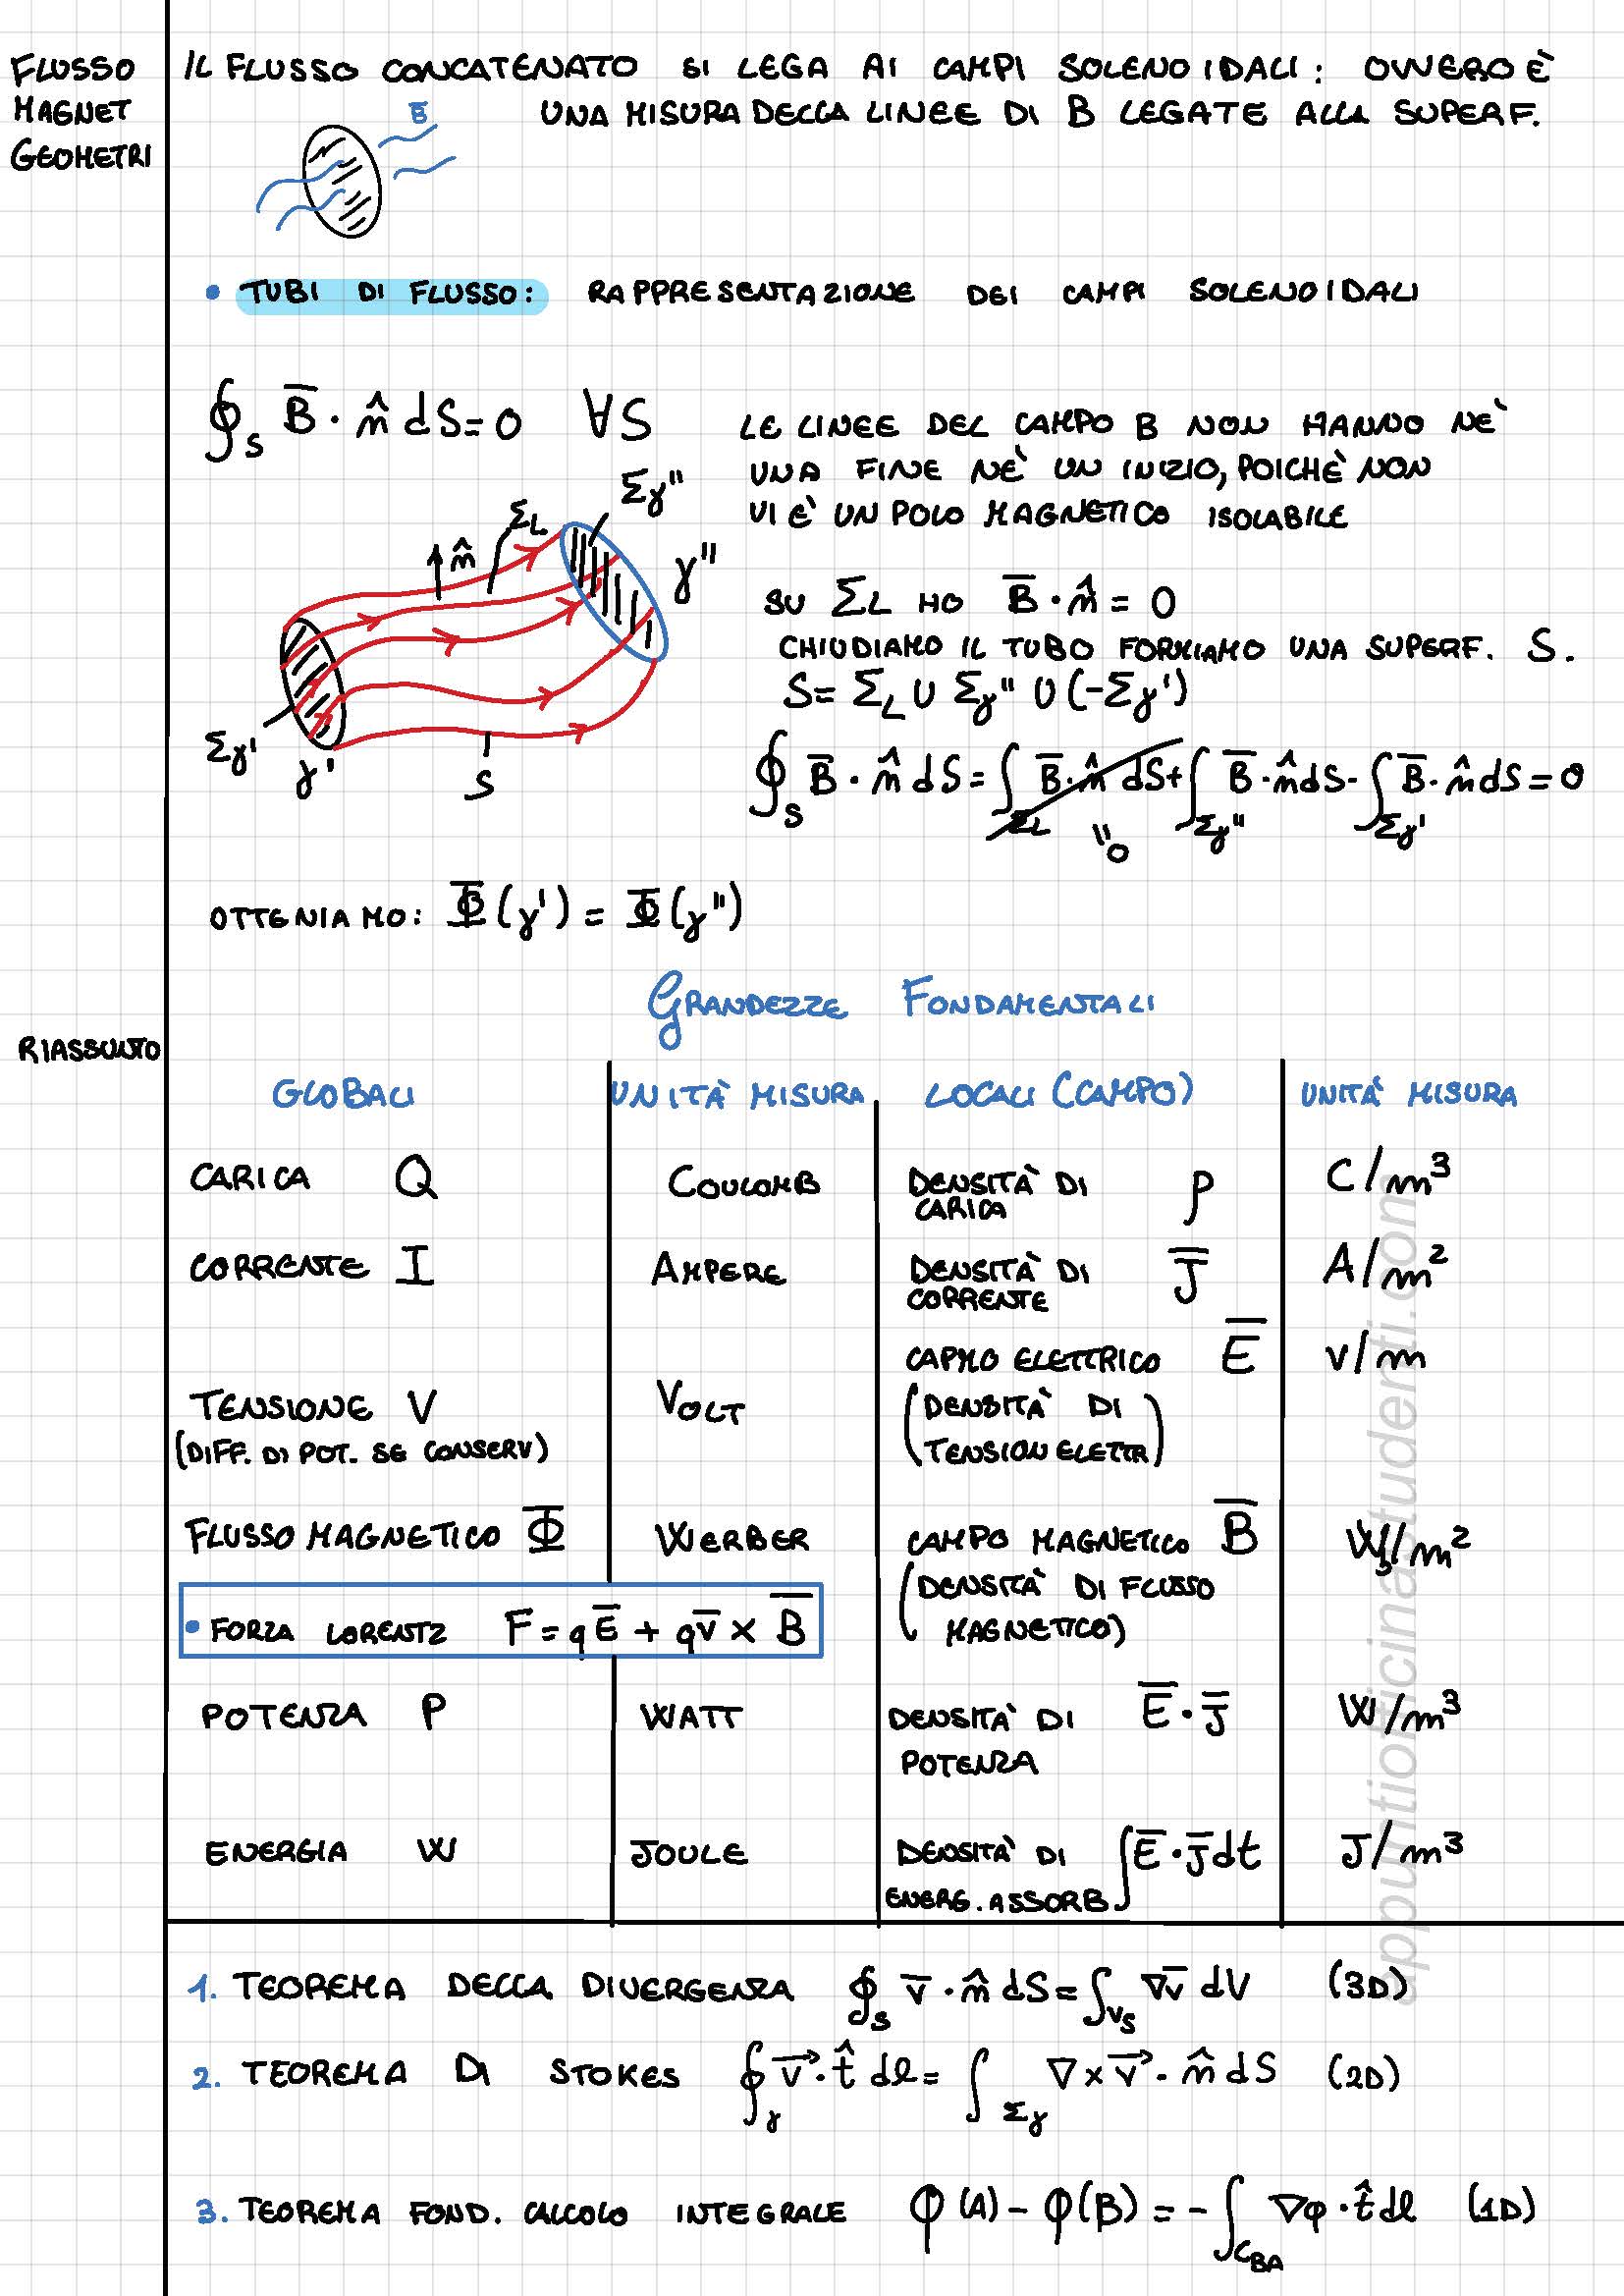 FLUSSO
MAGNET
GEOMETRI
IL FLUSSO CONCATENATO SI LEGA AI CAMPI SOLENOIDALI: OVVERO È
UNA MISURA DELLA LINEE DI B LEGATE ALLA SUPERF.
B̅
• TUBI DI FLUSSO: RAPPRESENTAZIONE DEI CAMPI SOLENOIDALI
∮_S B̅ · n̂ dS = 0 ∀S
LE LINEE DEL CAMPO B NON HANNO NE'
UNA FINE NE' UN INIZIO, POICHE' NON
VI E' UN POLO MAGNETICO ISOLABILE
Σγ''
Σ_L
n̂
γ''
Σγ'
γ'
S
SU Σ_L HO B̅ · n̂ = 0
CHIUDIAMO IL TUBO FORMIAMO UNA SUPERF. S.
S = Σ_L ∪ Σγ'' ∪ (-Σγ')
∮_S B̅ · n̂ dS = ∫_{Σ_L} B̅ · n̂ dS + ∫_{Σγ''} B̅ · n̂ dS - ∫_{Σγ'} B̅ · n̂ dS = 0
"0
OTTENIAMO: Φ̅(γ') = Φ̅(γ'')
GRANDEZZE FONDAMENTALI
RIASSUNTO
GLOBALI UNITÀ MISURA LOCALI (CAMPO) UNITÀ MISURA
CARICA Q COULOMB DENSITÀ DI CARICA ρ C/m³
CORRENTE I AMPERE DENSITÀ DI CORRENTE J̅ A/m²
CAPMO ELETTRICO E̅ V/m
TENSIONE V VOLT (DENSITÀ DI
(DIFF. DI POT. SE CONSERV) TENSION ELETTR)
FLUSSO MAGNETICO Φ̅ WERBER CAMPO MAGNETICO B̅ Wb/m²
(DENSITÀ DI FLUSSO
MAGNETICO)
• FORZA LORENTZ F = qE̅ + qv̅ × B̅
POTENZA P WATT DENSITÀ DI E̅ · J̅ W/m³
POTENZA
ENERGIA W JOULE DENSITÀ DI ∫E̅ · J̅ dt J/m³
ENERG. ASSORB
1. TEOREMA DELLA DIVERGENZA ∮_S v̅ · n̂ dS = ∫_{V_S} ∇v̅ dV (3D)
2. TEOREMA DI STOKES ∮_γ v⃗ · t̂ dl = ∫_{Σγ} ∇ × v⃗ · n̂ dS (2D)
3. TEOREMA FOND. CALCOLO INTEGRALE φ(A) - φ(B) = - ∫_{C_BA} ∇φ · t̂ dl (1D)
appuntiofficinastudenti.com